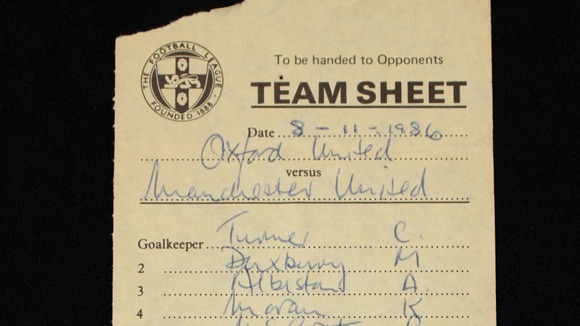 THE FOOTBALL LEAGUE
FOUNDED 1888
To be handed to Opponents
TEAM SHEET
Date 8-11-1986
Oxford United
versus
Manchester United
Goalkeeper Turner C.
2 Duxbury M
3 Albiston A
4 Moran K